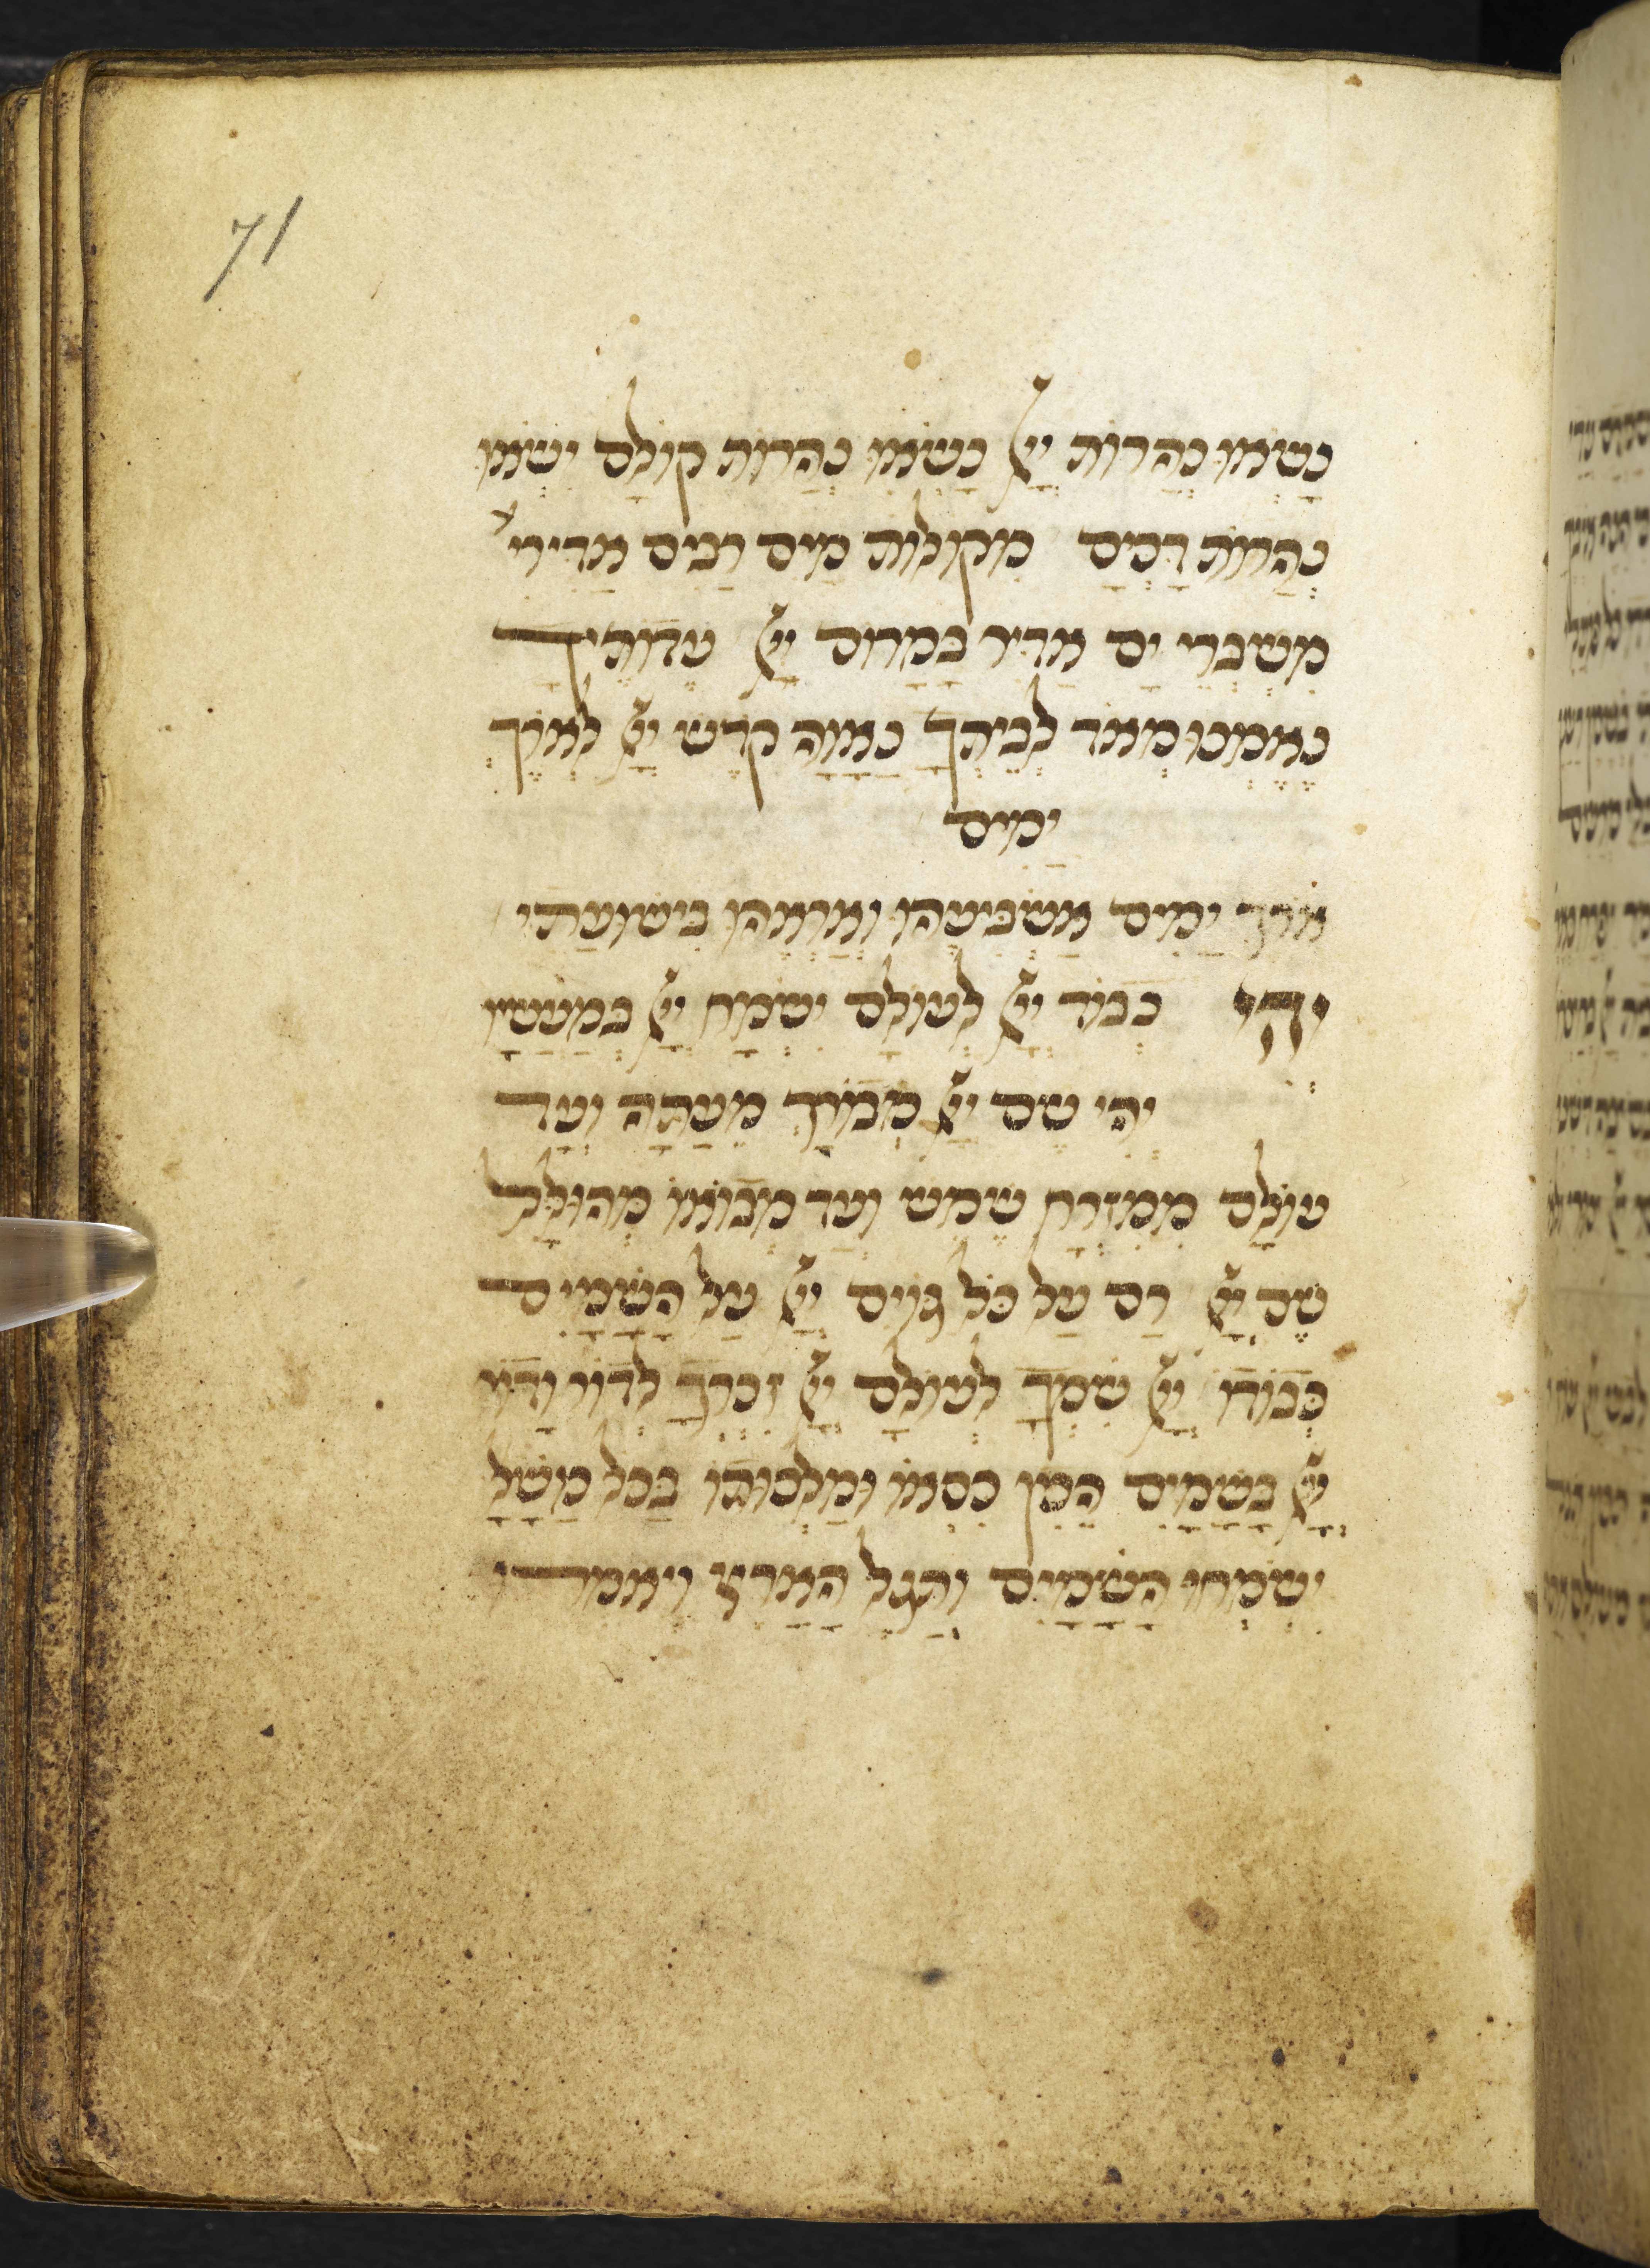 71
נָשְׂאוּ נְהָרוֹת יְיָ נָשְׂאוּ נְהָרוֹת קוֹלָם יִשְׂאוּ
נְהָרוֹת דָּכְיָם מִקּוֹלוֹת מַיִם רַבִּים אַדִּירִי׳
מִשְׁבְּרֵי יָם אַדִּיר בַּמָּרוֹם יְיָ עֵדוֹתֶיךָ
נֶאֶמְנוּ מְאֹד לְבֵיתְךָ נַאֲוָה קֹדֶשׁ יְיָ לְאֹרֶךְ
יָמִים
אֹרֶךְ יָמִים אַשְׂבִּיעֵהוּ וְאַרְאֵהוּ בִּישׁוּעָתִי
יְהִי כְבוֹד יְיָ לְעוֹלָם יִשְׂמַח יְיָ בְּמַעֲשָׂיו
יְהִי שֵׁם יְיָ מְבוֹרָךְ מֵעַתָּה וְעַד
עוֹלָם מִמִּזְרַח שֶׁמֶשׁ וְעַד מְבוֹאוֹ מְהוּלָּל
שֵׁם יְיָ רָם עַל כָּל גּוֹיִם יְיָ עַל הַשָּׁמַיִם
כְּבוֹדוֹ יְיָ שִׁמְךָ לְעוֹלָם יְיָ זִכְרְךָ לְדוֹר וָדוֹר
יְיָ בַּשָּׁמַיִם הֵכִין כִּסְאוֹ וּמַלְכוּתוֹ בַּכֹּל מָשָׁלָ
יִשְׂמְחוּ הַשָּׁמַיִם וְתָגֵל הָאָרֶץ וְיֹאמְרוּ